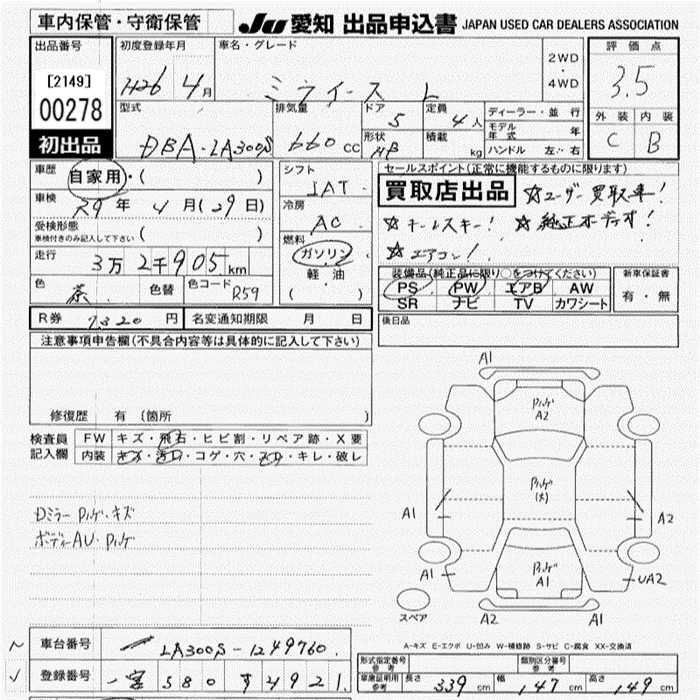 車内保管・守衛保管 JU 愛知 出品申込書 JAPAN USED CAR DEALERS ASSOCIATION
出品番号 初度登録年月 車名・グレード 2WD・4WD 評価点
[2149] H26 4月 ミライース L 3.5
00278 型式 排気量 ドア 定員 ディーラー・並行 外装 内装
DBA-LA300S 660cc 5 4人 モデル年式 年 C B
初出品 形状 HB 積載 kg ハンドル 左・右
車歴 自家用・( ) シフト セールスポイント(正常に機能するものに限ります)
車検 29年 4月(29日) IAT 買取店出品 ☆ユーザー買取車!
受検形態 ( ) 冷房 ☆キーレスキー! ☆純正オーディオ!
車検付きのみ記入して下さい AC ☆エアコン!
走行 3万2千905km 燃料 ガソリン・軽油・( )
装備品(純正品に限り○をつけてください) 新車保証書
色 茶 色替 色コード R59 PS PW エアB AW 有・無
SR ナビ TV カワシート
R券 7320円 名変通知期限 月 日 後日品
注意事項申告欄(不具合内容等は具体的に記入して下さい)
修復歴 有 (箇所 )
検査員記入欄 FW キズ・飛石・ヒビ割・リペア跡・X要
内装 キズ・汚れ・コゲ・穴・スレ・キレ・破レ
A1
A2
A1
A2
A1
A1
UA2
A2
A1
スペア
A-キズ E-エクボ U-凹み W-補修跡 S-サビ C-腐食 XX-交換済
車台番号 LA300S-1249760
型式指定番号 参考 類別区分番号 参考
登録番号 一宮 580 す 4921 車庫証明用 参考 長さ 339cm 幅 147cm 高さ 149cm